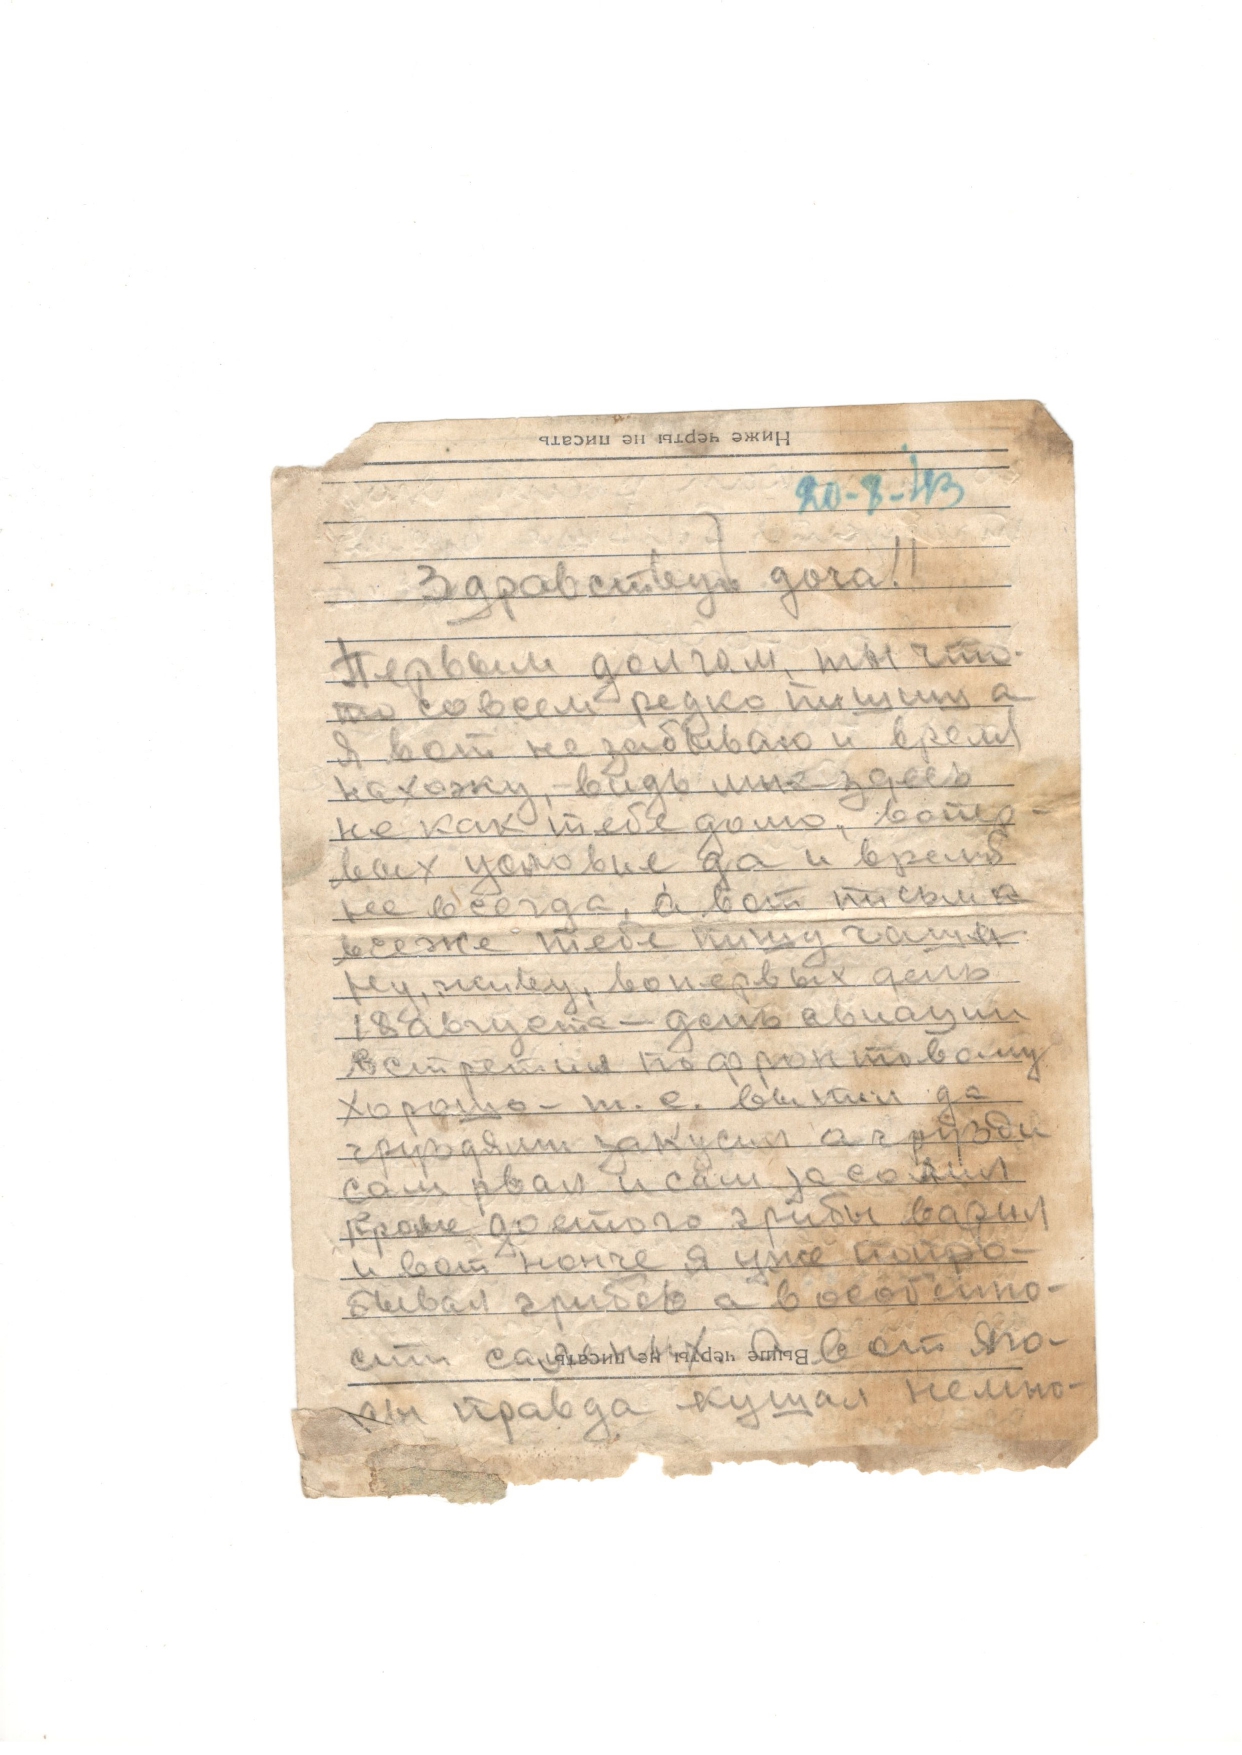 Ниже черты не писать
20-8-43
Здравствуй доча!!
Первым долгом, ты что-
то совсем редко пишиш а
я вот не забываю и время
нахожу, - видь мне здесь
не как тебе дома, вопер-
вых условие да и время
не всегда, а вот письма
всеже тебе пишу чаще
Ну, живу, вопервых день
18 августа - день авиации
встретил по фронтовому
хорошо - т.е. выпил да
груздями закусил а грузди
сам рвал и сам засолил
Кроме достого грибы варил
и вот нонче я уже попро-
бывал грибов а в особенно-
сти саленых а вот яго-
Выше черты не писать
ды правда кушал немно-